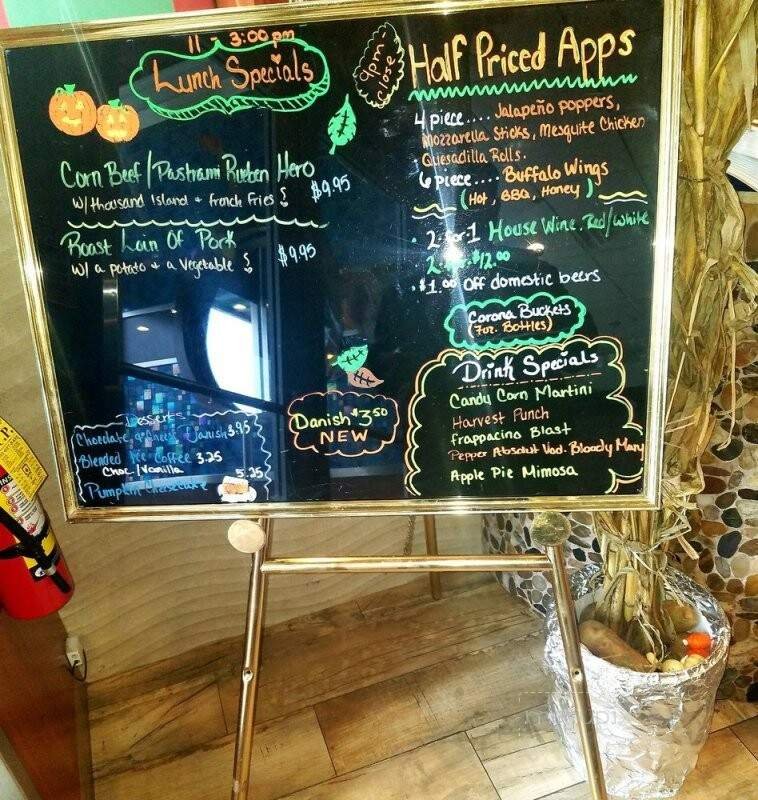 11 - 3:00pm
Lunch Specials
Corn Beef/Pastrami Rueben Hero
w/thousand Island + French Fries $9.95
Roast Loin Of Pork
w/ a potato + a Vegetable $9.95
Desserts
Chocolate Cheese Danish 3.95
Blended Ice Coffee 3.25
Choc./Vanilla
Pumpkin Cheesecake 5.25
Danish $3.50
NEW
9pm-
close
Half Priced Apps
4 piece.... Jalapeño poppers,
Mozzarella Sticks, Mesquite Chicken
Quesadilla Rolls.
6 piece.... Buffalo Wings
(Hot, BBQ, Honey)
2 for 1 House Wine. Red/White
$12.00
$1.00 Off domestic beers
Corona Buckets
(7oz. Bottles)
Drink Specials
Candy Corn Martini
Harvest Punch
Frappacino Blast
Pepper Absolut Vod. Bloody Mary
Apple Pie Mimosa